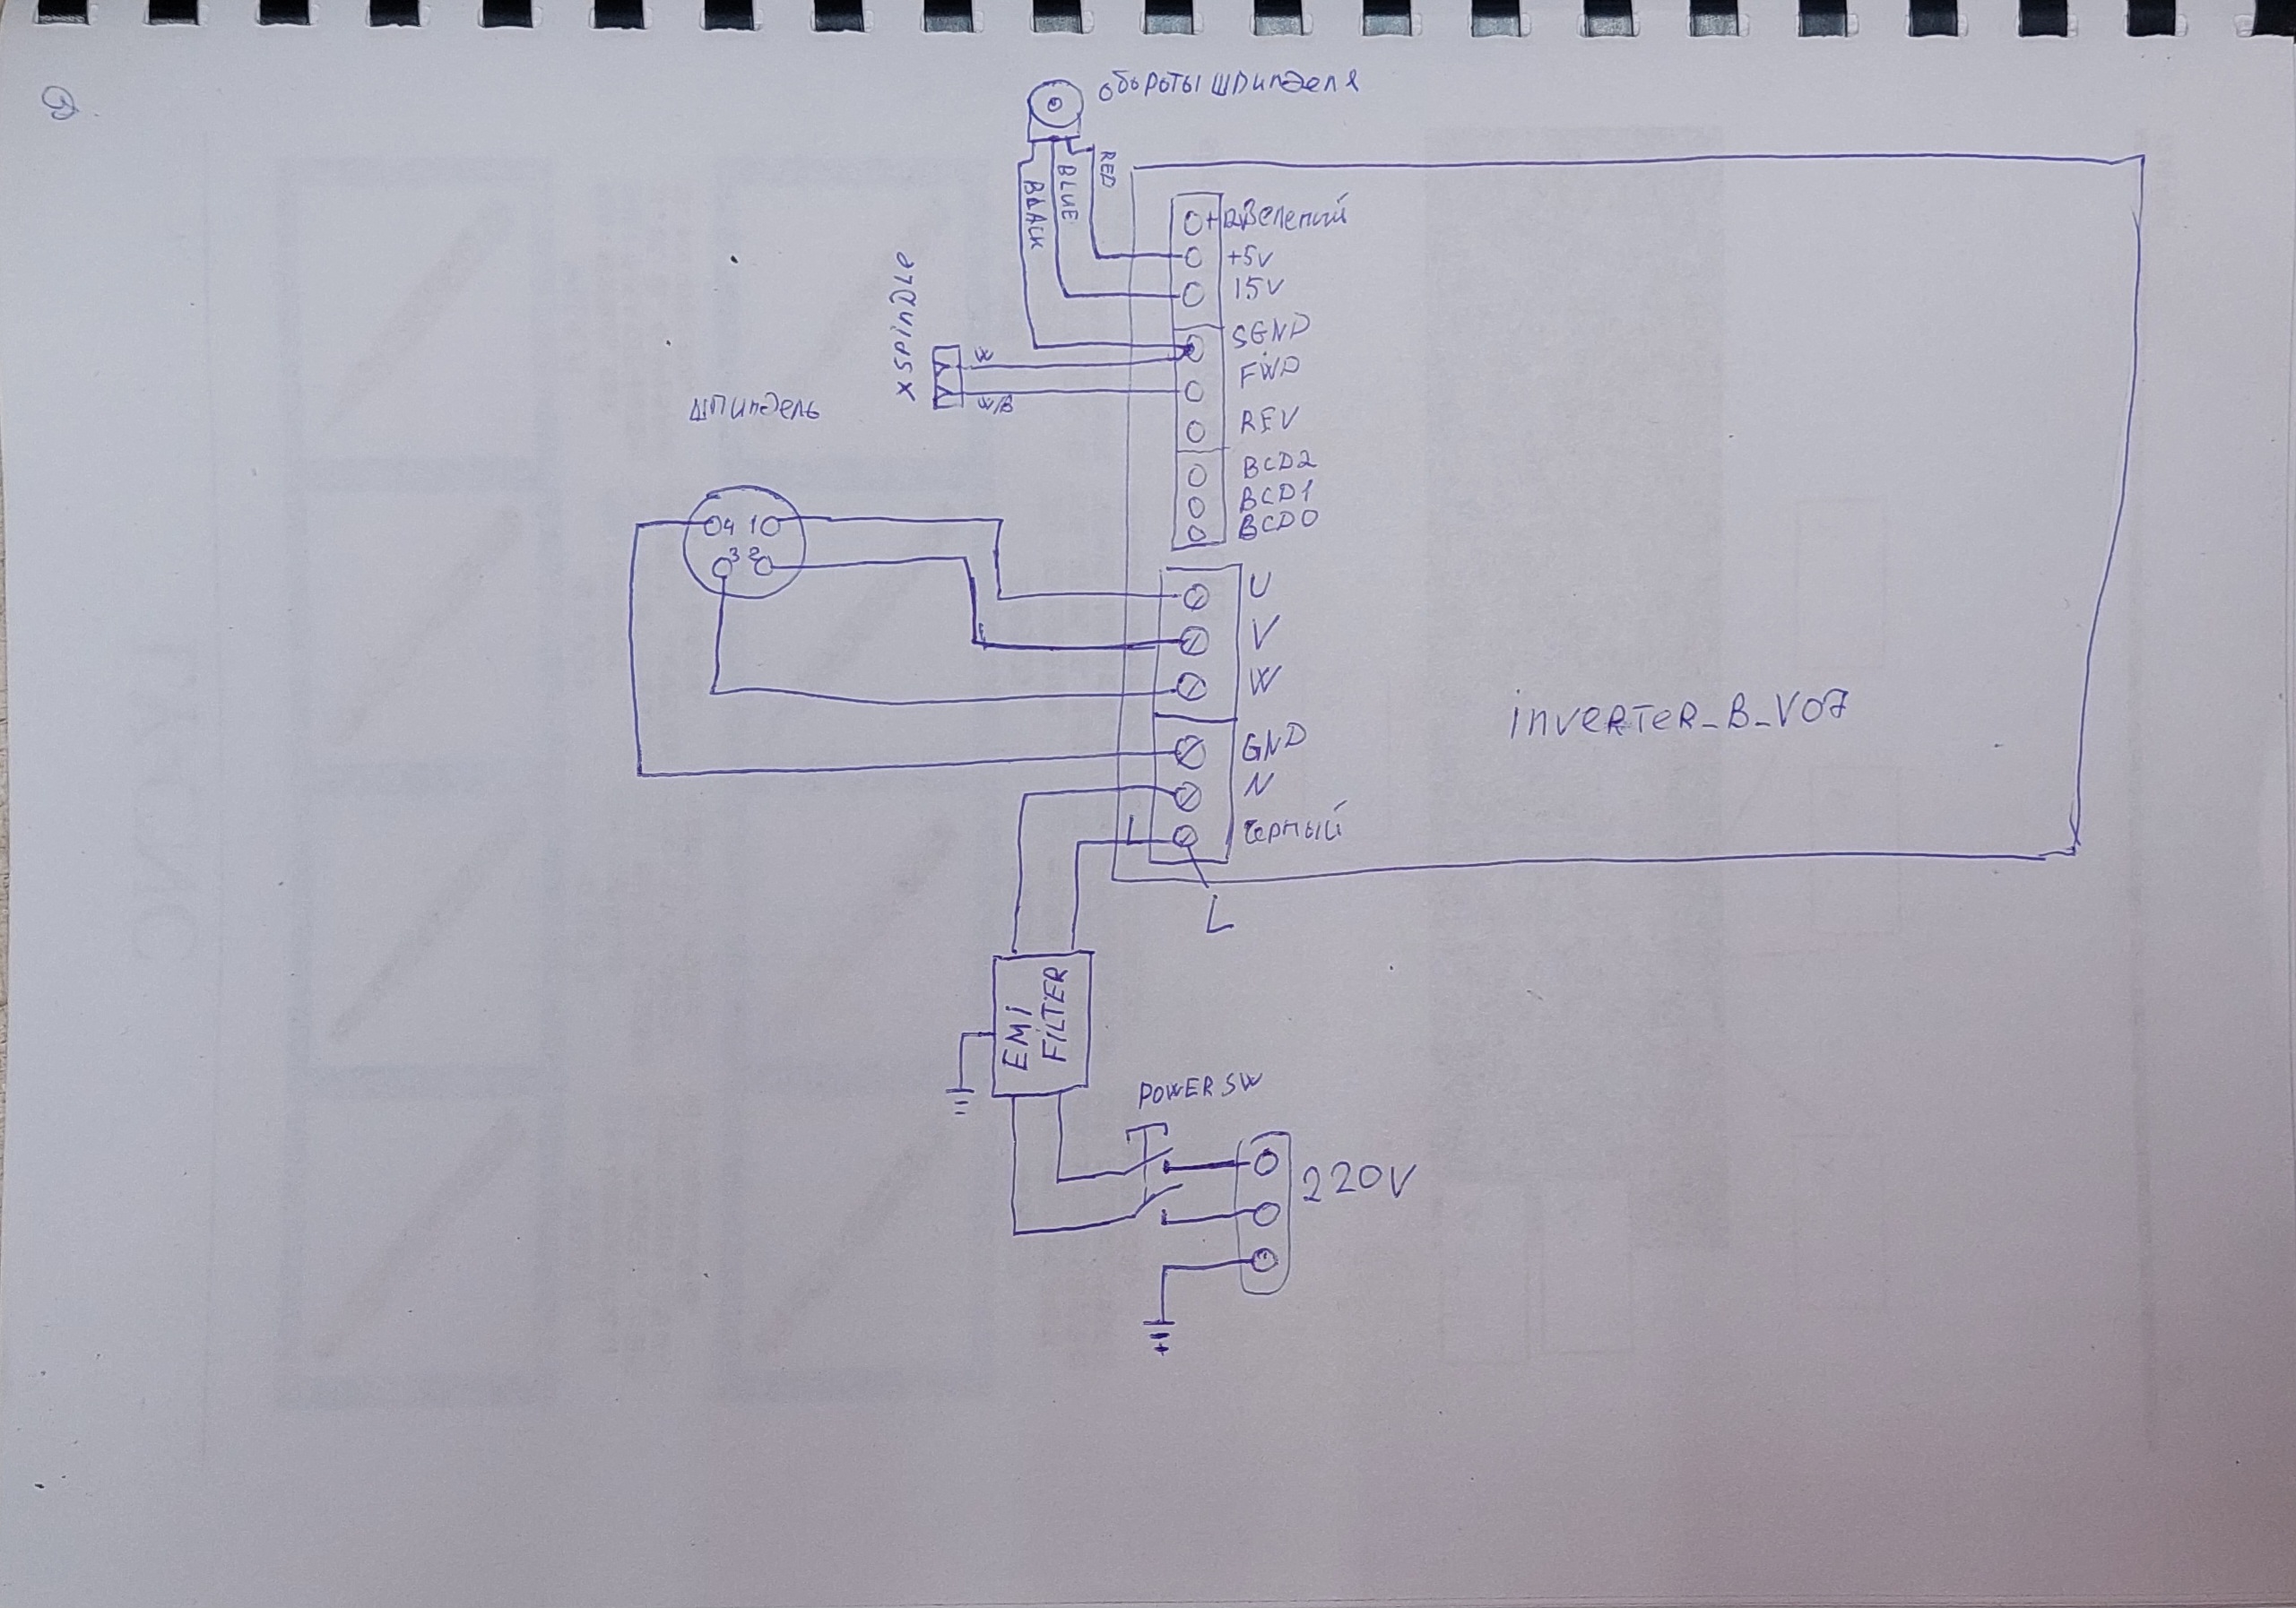 обороты шпинделя
RED
BLUE
BLACK
+5V
15V
SGND
FWD
REV
BCD2
BCD1
BCD0
XSPINDLE
W
W/B
шпиндель
4 1
3 2
U
V
W
GND
N
L
черный
L
INVERTER_B_V07
EMI
FILTER
POWER SW
220V